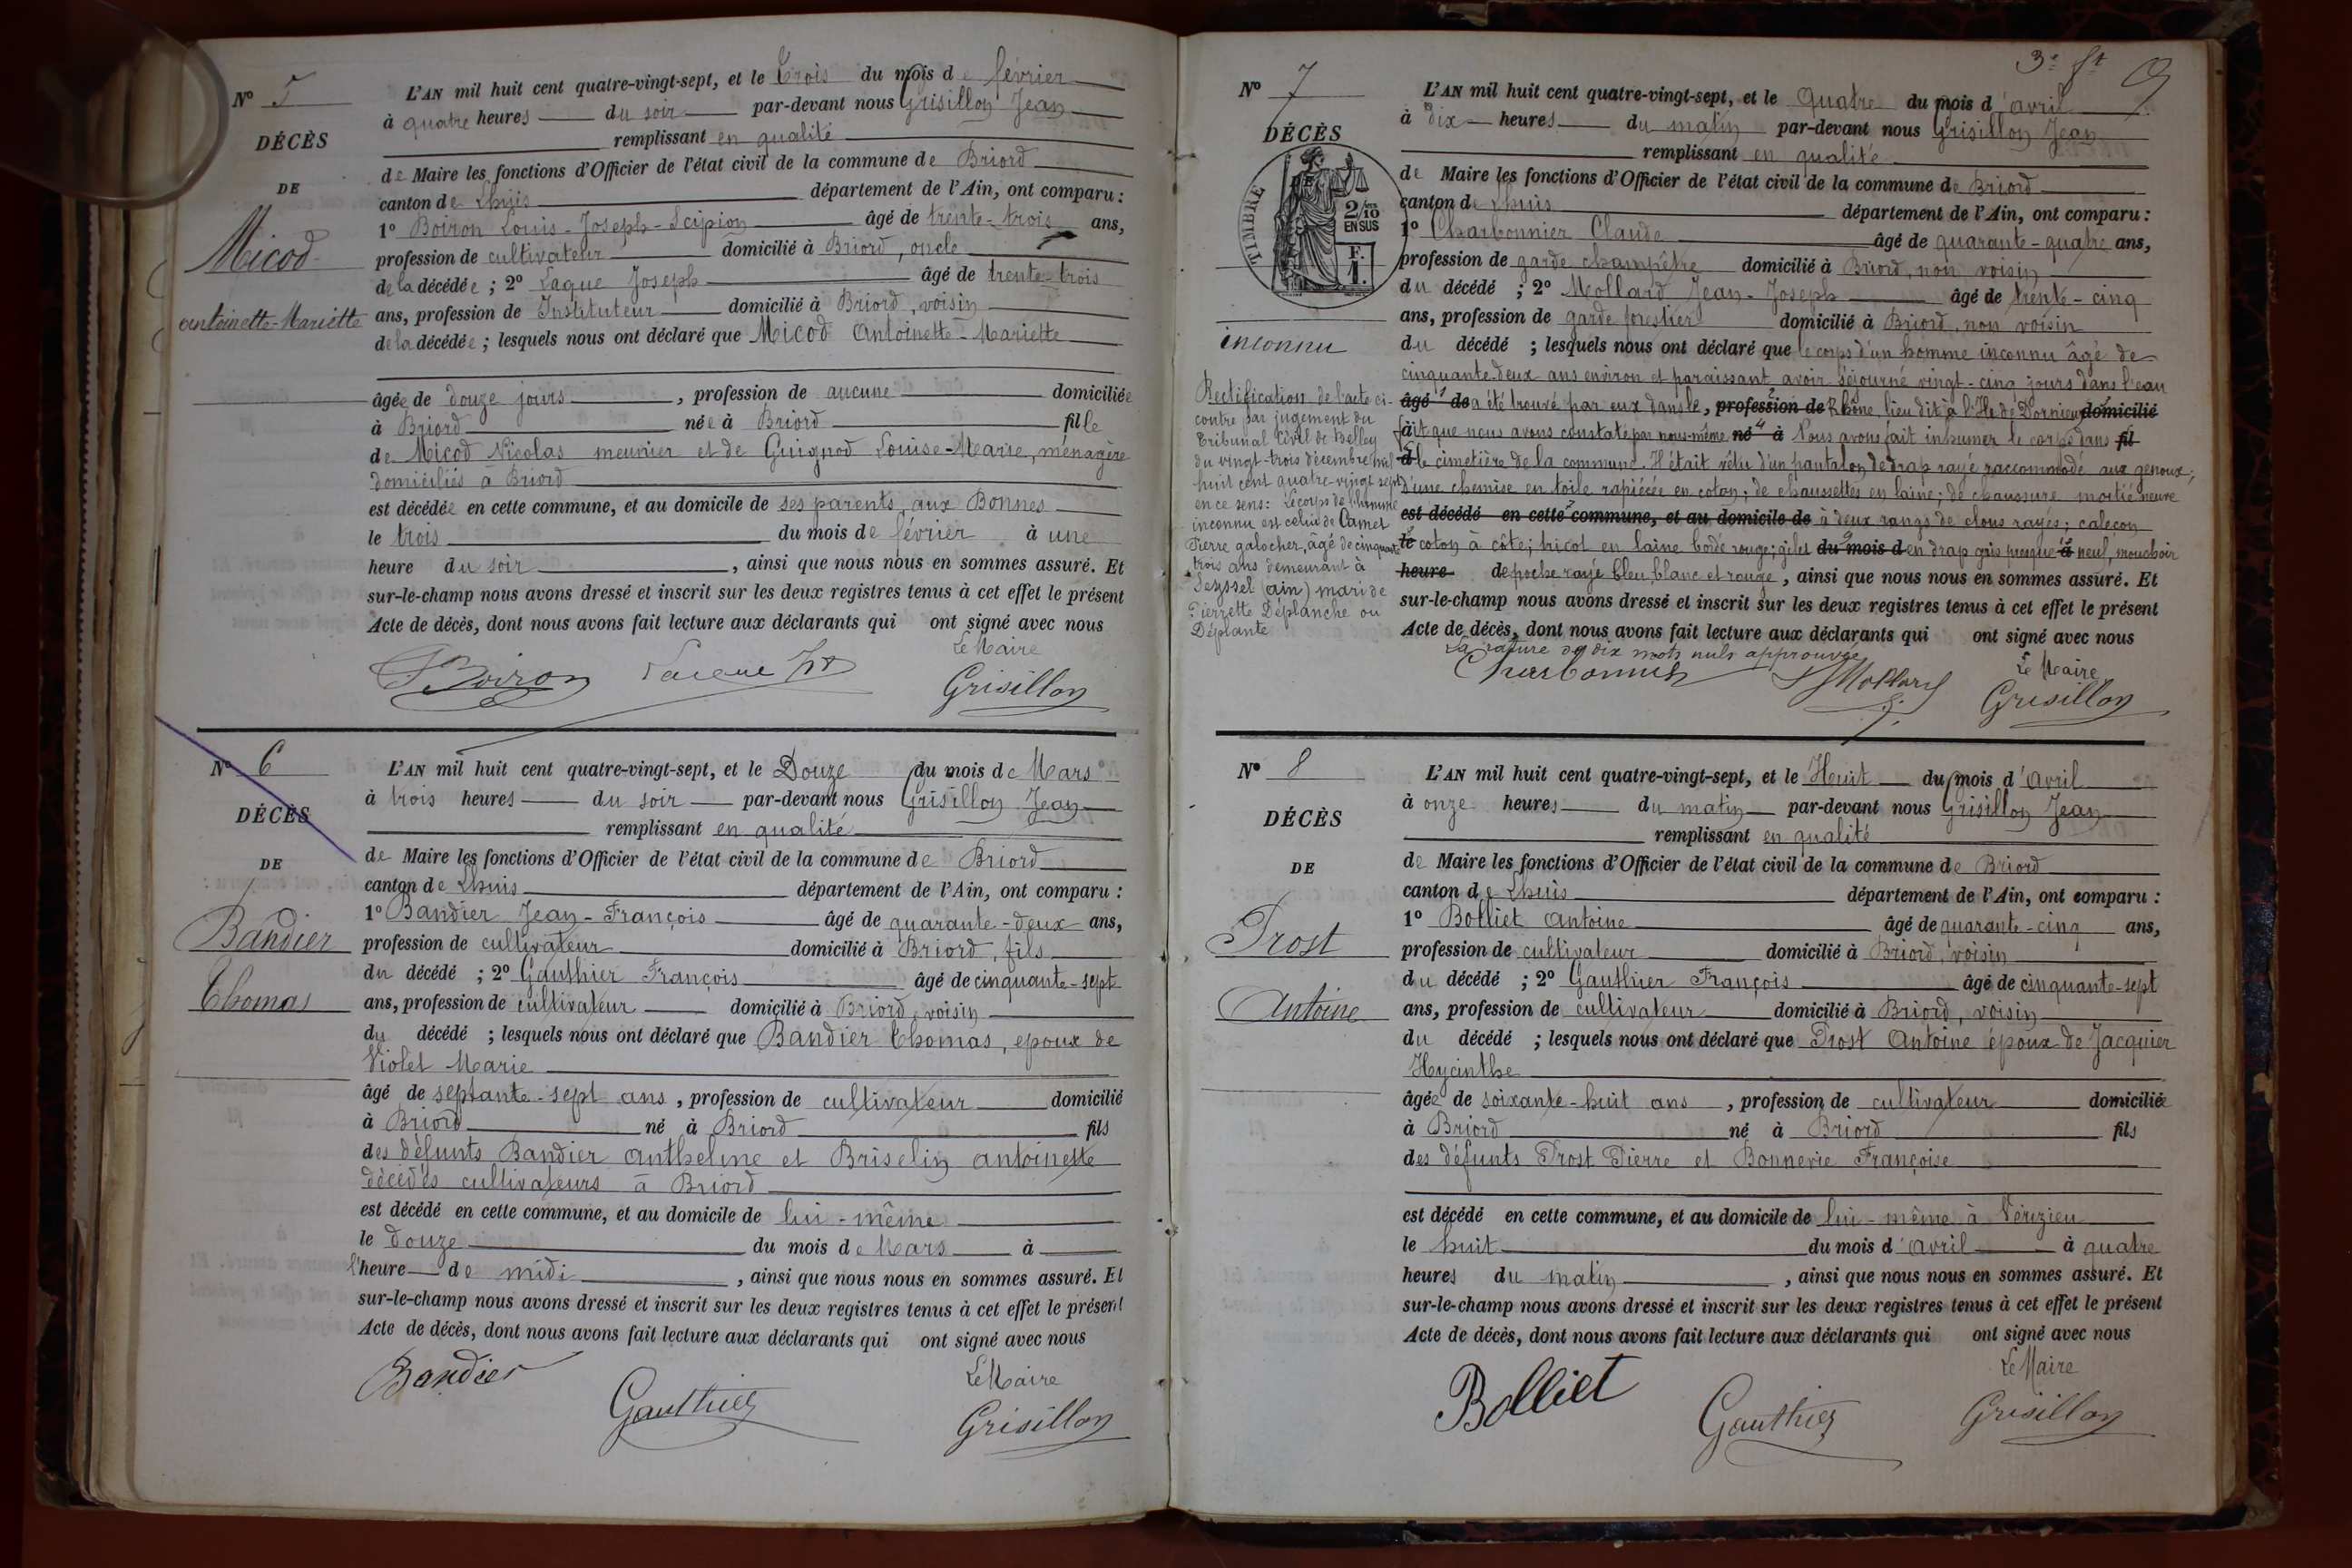 N° 5
DÉCÈS
DE
Micod
Antoinette-Mariette
L'AN mil huit cent quatre-vingt-sept, et le Trois du mois de février
à quatre heures du soir par-devant nous Grisillon Jean
remplissant en qualité
de Maire les fonctions d'Officier de l'état civil de la commune de Briord
canton de Lhuis département de l'Ain, ont comparu :
1° Boiron Louis-Joseph-Scipion âgé de trente-trois ans,
profession de cultivateur domicilié à Briord, oncle
de la décédée ; 2° Laque Joseph âgé de trente-trois
ans, profession de Instituteur domicilié à Briord, voisin
de la décédée ; lesquels nous ont déclaré que Micod Antoinette-Mariette
âgée de douze jours, profession de aucune domiciliée
à Briord née à Briord fille
de Micod Nicolas meunier et de Guignod Louise-Marie, ménagère
domiciliés à Briord
est décédée en cette commune, et au domicile de ses parents, aux Bonnes
le trois du mois de février à une
heure du soir, ainsi que nous nous en sommes assuré. Et
sur-le-champ nous avons dressé et inscrit sur les deux registres tenus à cet effet le présent
Acte de décès, dont nous avons fait lecture aux déclarants qui ont signé avec nous
Le Maire
Boiron
Grisillon
N° 6
DÉCÈS
DE
Bandier
Thomas
L'AN mil huit cent quatre-vingt-sept, et le Douze du mois de Mars
à trois heures du soir par-devant nous Grisillon Jean
remplissant en qualité
de Maire les fonctions d'Officier de l'état civil de la commune de Briord
canton de Lhuis département de l'Ain, ont comparu :
1° Bandier Jean-François âgé de quarante-deux ans,
profession de cultivateur domicilié à Briord, fils
du décédé ; 2° Gauthier François âgé de cinquante-sept
ans, profession de cultivateur domicilié à Briord, voisin
du décédé ; lesquels nous ont déclaré que Bandier Thomas, époux de
Violet Marie
âgé de septante-sept ans, profession de cultivateur domicilié
à Briord né à Briord fils
des défunts Bandier Anthelme et Briselin Antoinette
décédés cultivateurs à Briord
est décédé en cette commune, et au domicile de lui-même
le douze du mois de Mars à
l'heure de midi, ainsi que nous nous en sommes assuré. Et
sur-le-champ nous avons dressé et inscrit sur les deux registres tenus à cet effet le présent
Acte de décès, dont nous avons fait lecture aux déclarants qui ont signé avec nous
Le Maire
Bandier
Gauthier
Grisillon
3e ft 9
N° 7
DÉCÈS
TIMBRE
2/10 EN SUS
F. 1.
inconnu
Rectification de l'acte ci-
contre par jugement du
Tribunal Civil de Belley
du vingt-trois décembre mil
huit cent quatre-vingt sept
en ce sens: Le corps de l'homme
inconnu est celui de Camet
Pierre galocher, âgé de cinquante
trois ans demeurant à
Seyssel (ain) mari de
Pierrette Déplanche ou
Déplante
L'AN mil huit cent quatre-vingt-sept, et le Quatre du mois d'avril
à dix heures du matin par-devant nous Grisillon Jean
remplissant en qualité
de Maire les fonctions d'Officier de l'état civil de la commune de Briord
canton de Lhuis département de l'Ain, ont comparu :
1° Charbonnier Claude âgé de quarante-quatre ans,
profession de garde champêtre domicilié à Briord, non voisin
du décédé ; 2° Mollard Jean-Joseph âgé de trente-cinq
ans, profession de garde forestier domicilié à Briord, non voisin
du décédé ; lesquels nous ont déclaré que le corps d'un homme inconnu âgé de
cinquante-deux ans environ et paraissant avoir séjourné vingt-cinq jours dans l'eau
âgé de a été trouvé par eux dans le, profession de Rhône, lieu dit à l'Ile de Dornieu domicilié
fait que nous avons constaté par nous-même né à Nous avons fait inhumer le corps dans fil
d le cimetière de la commune. Il était vêtu d'un pantalon de drap rayé raccommodé aux genoux;
d'une chemise en toile rapiécée en coton; de chaussettes en laine; de chaussure moitié neuve
est décédé en cette commune, et au domicile de à deux rangs de clous rayés; caleçon
le coton à côte; tricot en laine bordé rouge; gilet du mois d en drap gris presque à neuf, mouchoir
heure de poche rayé bleu, blanc et rouge, ainsi que nous nous en sommes assuré. Et
sur-le-champ nous avons dressé et inscrit sur les deux registres tenus à cet effet le présent
Acte de décès, dont nous avons fait lecture aux déclarants qui ont signé avec nous
La rature de dix mots nuls approuvée
Le Maire
Charbonnier
Mollard
Grisillon
N° 8
DÉCÈS
DE
Prost
Antoine
L'AN mil huit cent quatre-vingt-sept, et le Huit du mois d'avril
à onze heures du matin par-devant nous Grisillon Jean
remplissant en qualité
de Maire les fonctions d'Officier de l'état civil de la commune de Briord
canton de Lhuis département de l'Ain, ont comparu :
1° Bolliet Antoine âgé de quarante-cinq ans,
profession de cultivateur domicilié à Briord, voisin
du décédé ; 2° Gauthier François âgé de cinquante-sept
ans, profession de cultivateur domicilié à Briord, voisin
du décédé ; lesquels nous ont déclaré que Prost Antoine époux de Jacquier
Hycinthe
âgée de soixante-huit ans, profession de cultivateur domiciliée
à Briord né à Briord fils
des défunts Prost Pierre et Bonnerie Françoise
est décédé en cette commune, et au domicile de lui-même à Vérizieu
le huit du mois d'avril à quatre
heures du matin, ainsi que nous nous en sommes assuré. Et
sur-le-champ nous avons dressé et inscrit sur les deux registres tenus à cet effet le présent
Acte de décès, dont nous avons fait lecture aux déclarants qui ont signé avec nous
Le Maire
Bolliet
Gauthier
Grisillon